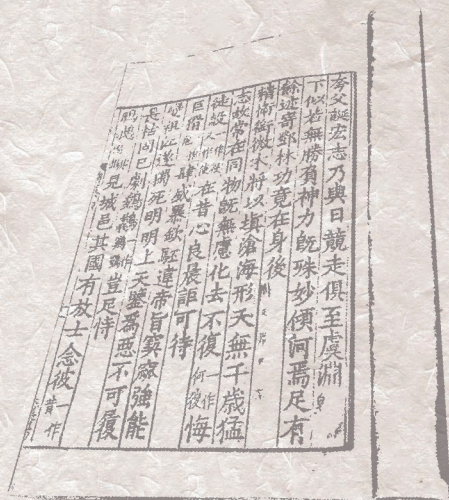 夸父誕宏志乃與日競走俱至虞淵
下似若無勝負神力既殊妙傾河焉足有
餘迹寄鄧林功竟在身後
精衛銜微木將以填滄海形夭無千歲猛
志故常在同物既無慮化去不復一作何復悔
徒設在昔心良晨詎可待
巨猾肆威暴欽駓違帝旨窫窳強能
變祖江遂獨死明明上天鑒為惡不可履
長枯固已劇鵔鶚豈足恃
見城邑其國有放士念彼一作